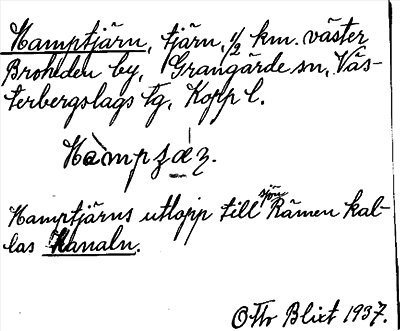 Hamptjärn, tjärn, ½ km. väster
Broheden by, Grangärde sn, Väs-
terbergslags tg, Kopp l.
Hamptjärns utlopp till sjön Rämen kal-
las Kanaln.
Otto Blixt 1937.